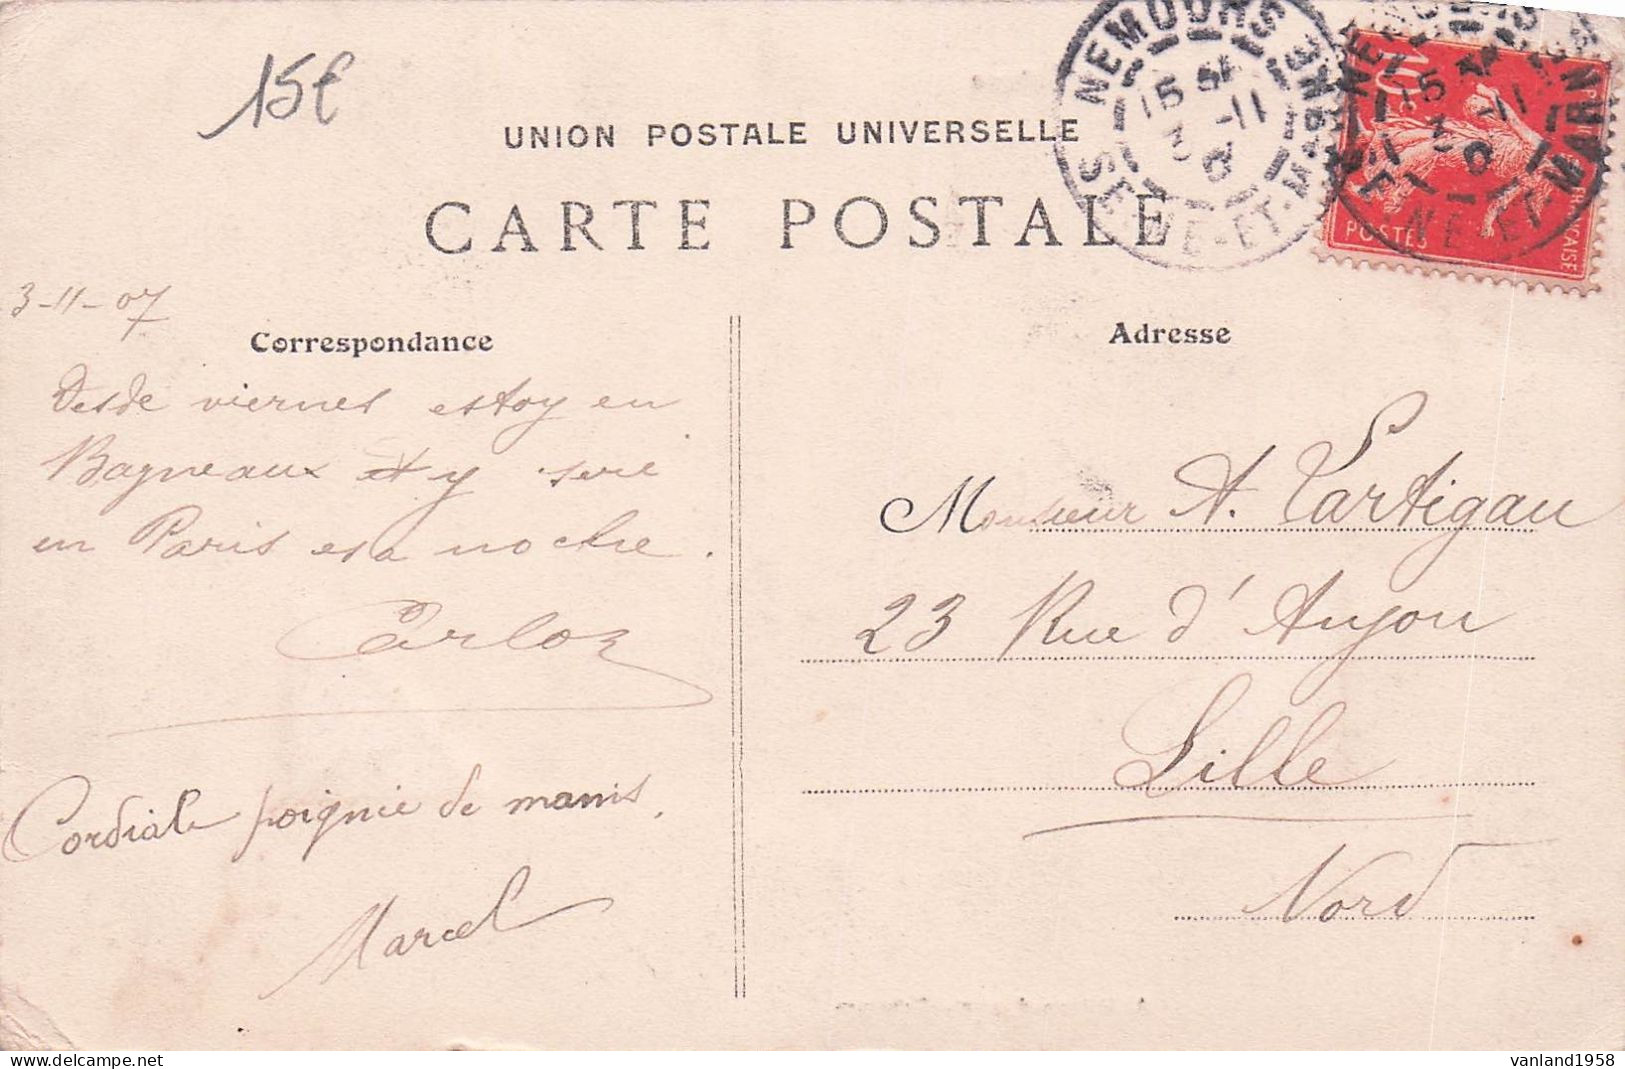 15€
UNION POSTALE UNIVERSELLE
CARTE POSTALE
NEMOURS
SEINE-ET-MARNE
15
3 -11
10
POSTES
3-11-07
Correspondance
Desde viernes estoy en
Bagneaux y seré
en Paris esa noche.
Carlos
Cordiale poignée de mains.
Marcel
Adresse
Monsieur A. Partigau
23 Rue d'Anjou
Lille
Nord
vanland1958